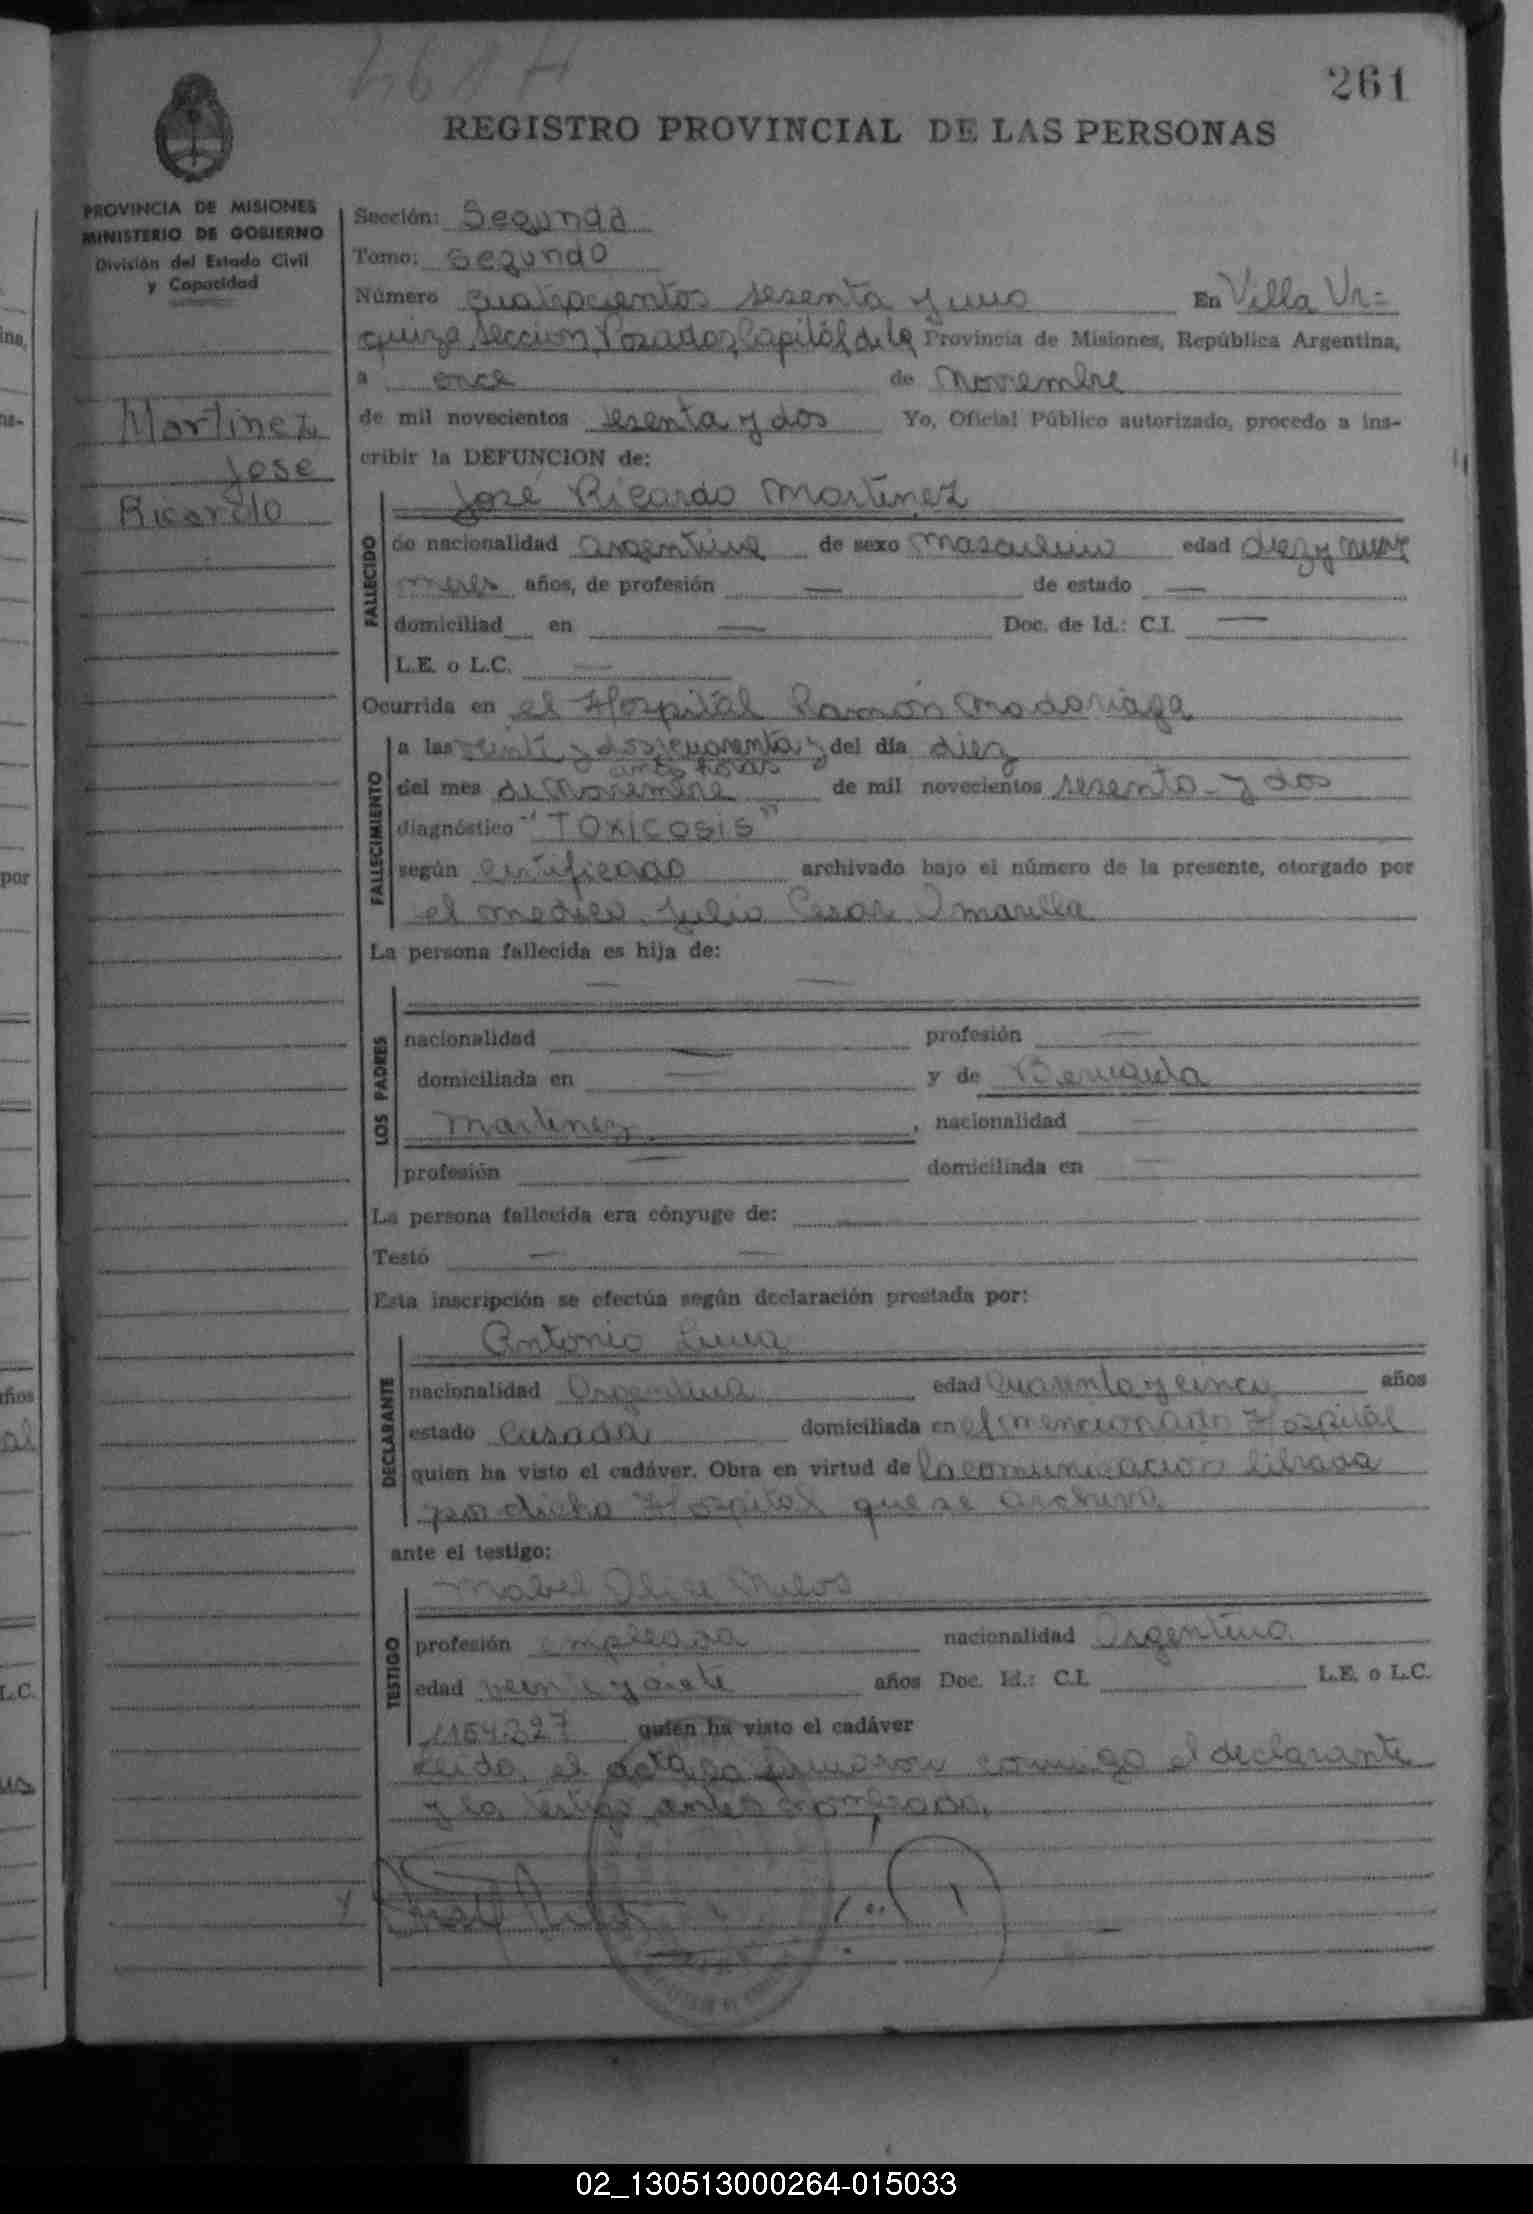 261
REGISTRO PROVINCIAL DE LAS PERSONAS
PROVINCIA DE MISIONES
MINISTERIO DE GOBIERNO
División del Estado Civil
y Capacidad
Martinez
Jose
Ricardo
Sección: Segunda
Tomo: Segundo
Número cuatrocientos sesenta y uno En Villa Ur=
quiza Seccion Posadas, Capital de la Provincia de Misiones, República Argentina,
a once de Noviembre
de mil novecientos sesenta y dos Yo, Oficial Público autorizado, procedo a ins-
cribir la DEFUNCION de:
José Ricardo Martinez
FALLECIDO
de nacionalidad argentina de sexo masculino edad diez y nueve
meses años, de profesión — de estado —
domiciliad en — Doc. de Id.: C.I. —
L.E. o L.C. —
Ocurrida en el Hospital Ramón Madariaga
FALLECIMIENTO
a las veinte y dos y cuarenta y del día diez
horas
del mes de Noviembre de mil novecientos sesenta y dos
diagnóstico "TOXICOSIS"
según certificado archivado bajo el número de la presente, otorgado por
el medico Julio Cesar
La persona fallecida es hija de:
— —
LOS PADRES
nacionalidad — profesión —
domiciliada en — y de Bernarda
Martinez, nacionalidad —
profesión — domiciliada en —
La persona fallecida era cónyuge de:
Testó — —
Esta inscripción se efectúa según declaración prestada por:
DECLARANTE
Antonio Luna
nacionalidad Argentina edad cuarenta y cinco años
estado casada domiciliada en el mencionado Hospital
quien ha visto el cadáver. Obra en virtud de la comunicación librada
por dicho Hospital que se archiva
ante el testigo:
TESTIGO
Mabel
profesión empleada nacionalidad Argentina
edad veinte y siete años Doc. Id.: C.I. L.E. o L.C.
1154.327 quien ha visto el cadáver
Leida el acta la firmaron conmigo el declarante
y la testigo antes nombrada.
02_130513000264-015033